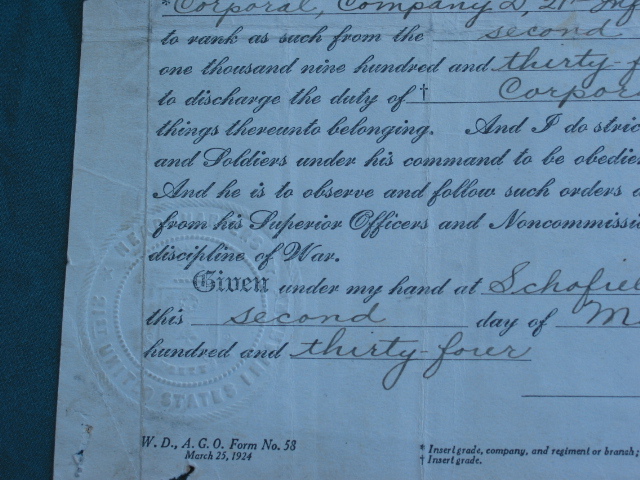 *Corporal, Company D, 21st Inf
to rank as such from the second
one thousand nine hundred and thirty-f
to discharge the duty of † Corpora
things thereunto belonging. And I do stric
and Soldiers under his command to be obedie
And he is to observe and follow such orders a
from his Superior Officers and Noncommissio
discipline of War.
Given under my hand at Schofiel
this second day of M
hundred and thirty-four
W. D., A. G. O. Form No. 58
March 25, 1924
* Insert grade, company, and regiment or branch;
† Insert grade.
UNITED STATES